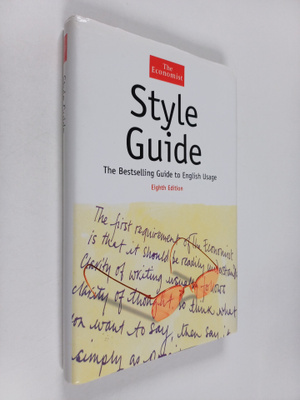 The
Economist
Style
Guide
The Bestselling Guide to English Usage
Eighth Edition
The first requirement of The Economist
is that it should be readily understood.
Clarity of writing usually follows
clarity of thought. So think what
you want to say, then say it
simply as
Style Guide